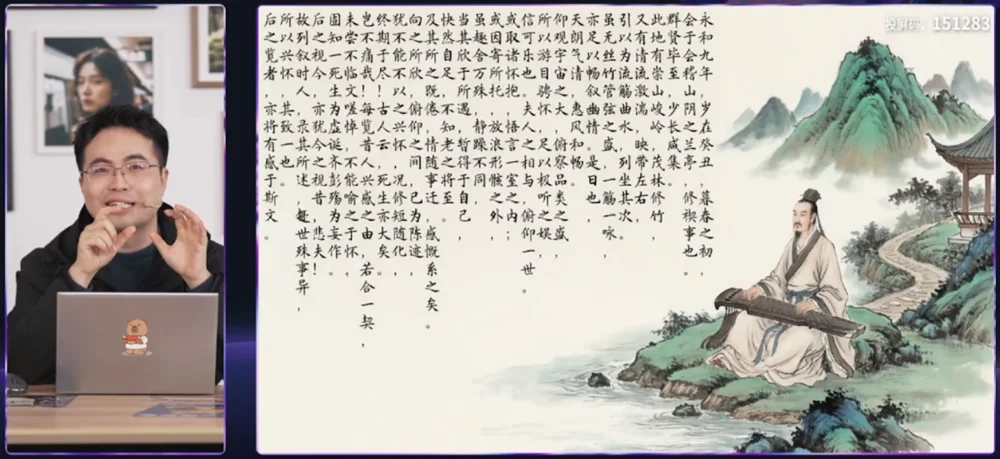 投屏码：151283
永和九年，岁在癸丑，暮春之初，
会于会稽山阴之兰亭，修禊事也。
群贤毕至，少长咸集。
此地有崇山峻岭，茂林修竹，
又有清流激湍，映带左右，
引以为流觞曲水，列坐其次。
虽无丝竹管弦之盛，一觞一咏，
亦足以畅叙幽情。是日也，
天朗气清，惠风和畅。
仰观宇宙之大，俯察品类之盛，
所以游目骋怀，足以极视听之娱，
信可乐也。夫人之相与，俯仰一世。
或取诸怀抱，悟言一室之内；
或因寄所托，放浪形骸之外，
虽趣舍万殊，静躁不同，
当其欣于所遇，暂得于己，
快然自足，不知老之将至，
及其所之既倦，情随事迁，感慨系之矣。
向之所欣，俯仰之间，已为陈迹，
犹不能不以之兴怀，况修短随化，
终期于尽！古人云，死生亦大矣。
岂不痛哉！每览昔人兴感之由，若合一契，
未尝不临文嗟悼，不能喻之于怀。
固知一死生为虚诞，齐彭殇为妄作。
后之视今，亦犹今之视昔，悲夫！
故列叙时人，录其所述，虽世殊事异，
所以兴怀，其致一也。
后之览者，亦将有感于斯文。